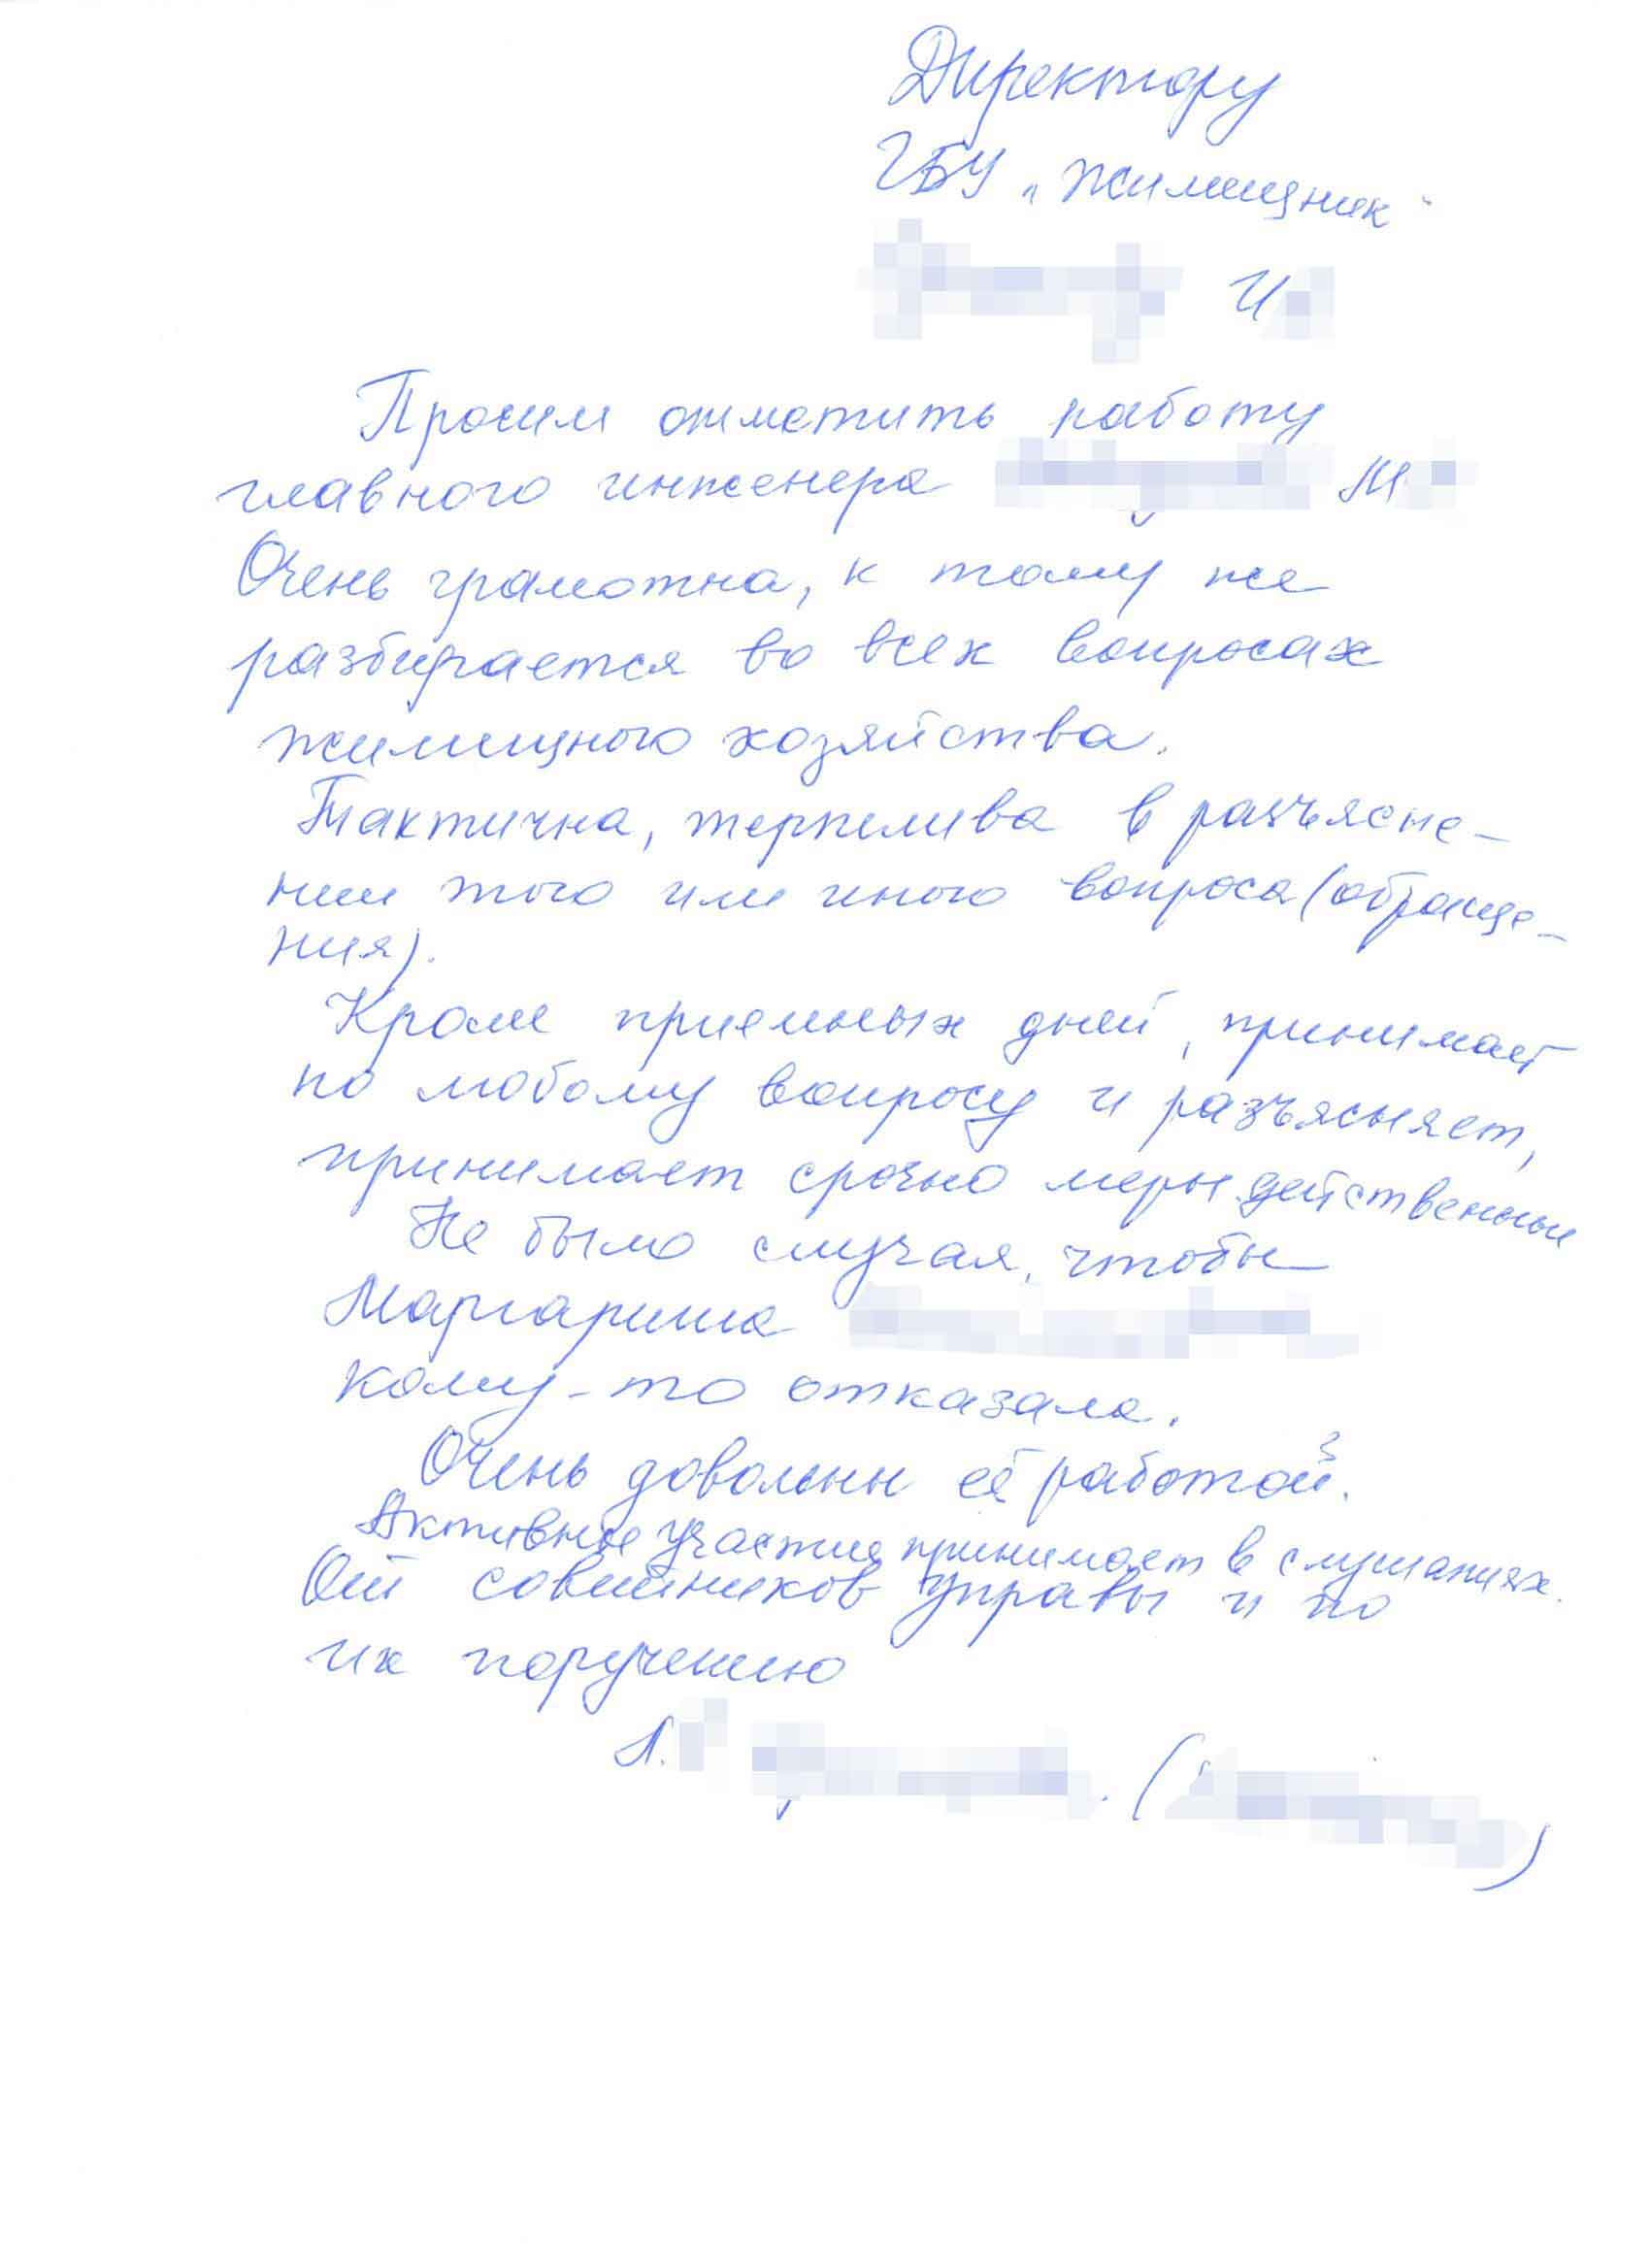 Директору
ГБУ „Жилищник"
И
Просим отметить работу
главного инженера М
Очень грамотна, к тому же
разбирается во всех вопросах
жилищного хозяйства.
Тактична, терпелива в разъясне-
нии того или иного вопроса (обраще-
ния).
Кроме приемных дней, принимает
по любому вопросу и разъясняет,
принимает срочно меры действенные
Не было случая, чтобы
Маргарита
кому-то отказала.
Очень довольны её работой.
Активное участие принимает в слушаниях.
От советников управы и по
их поручению
Л. . ( )